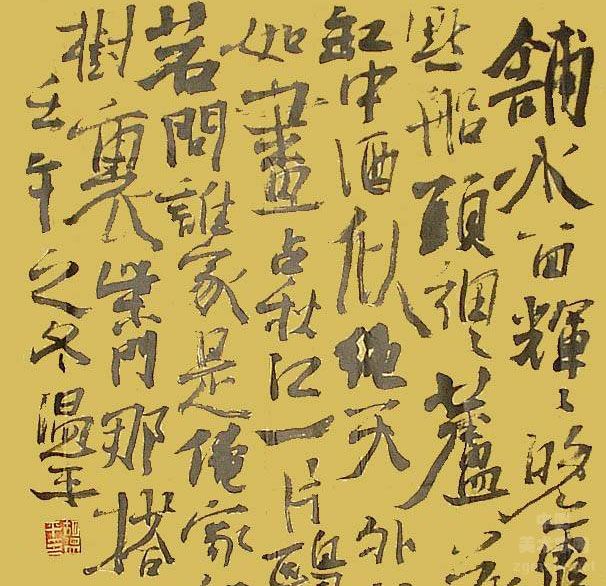 舖水面輝〻晚霞
點船頭細〻蘆花
缸中酒似繩天外
如畫占秋江一片鷗
若問誰家是俺家
樹裏柴門那搭
壬午之冬溫平